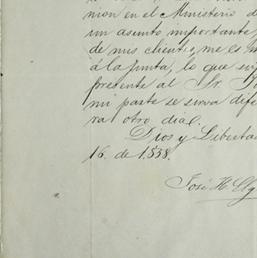 nion en el Ministerio d
un asunto importante
de mis clientes, me es
á la Junta, lo que
presente al Sr.
mi parte se sirva dife
ra otro dia.
Dios y Libertad
16. de 1.838.
José H.